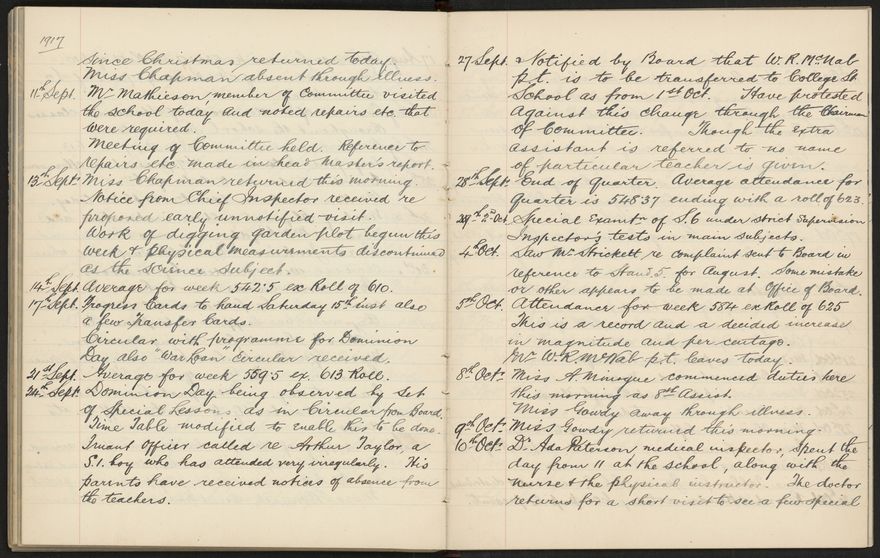 1917
since Christmas returned today.
Miss Chapman absent through illness.
11th Sept. Mr Mathieson, member of Committee visited
the school today and noted repairs etc. that
were required.
Meeting of Committee held. Reference to
repairs etc. made in head master's report.
13th Sept. Miss Chapman returned this morning.
Notice from Chief Inspector received re
proposed early unnotified visit.
Work of digging garden plot begun this
week & physical measurements discontinued
as the science subject.
14th Sept. Average for week 542.5 ex Roll of 610.
17th Sept. Progress Cards to hand Saturday 15th inst also
a few Transfer Cards.
Circular with programme for Dominion
Day also "War Loan circular received.
21st Sept. Average for week 559.5 ex. 613 Roll.
24th Sept. Dominion Day being observed by Set
of Special Lessons, as in Circular from Board.
Time Table modified to enable this to be done.
Truant Officer called re Arthur Taylor, a
S.1. boy who has attended very irregularly. His
parents have received notices of absence from
the teachers.
27 Sept. Notified by Board that W. R. McNab
p.t. is to be transferred to College St
School as from 1st Oct. Have protested
against this change through the Chairman
of Committee. Though the extra
assistant is referred to no name
of particular teacher is given.
28th Sept. End of Quarter. Average attendance for
Quarter is 548.37 ending with a roll of 623.
2nd Oct. Special Examtn of S.6 under strict supervision
Inspector's tests in main subjects.
4th Oct. Saw Mr Strickett re complaint sent to Board in
reference to Stand. 5. for August. Some mistake
or other appears to be made at Office of Board.
5th Oct. Attendance for week 584 ex Roll of 625
This is a record and a decided increase
in magnitude and per centage.
Mr W. R. McNab p.t. leaves today.
8th Oct. Miss A. Minogue commenced duties here
this morning as 8th Assist.
Miss Gowdy away through illness.
9th Oct. Miss Gowdy returned this morning.
10th Oct. Dr Ada Paterson, medical inspector, spent the
day from 11 at the school, along with the
nurse & the physical instructor. The doctor
returns for a short visit to see a few special